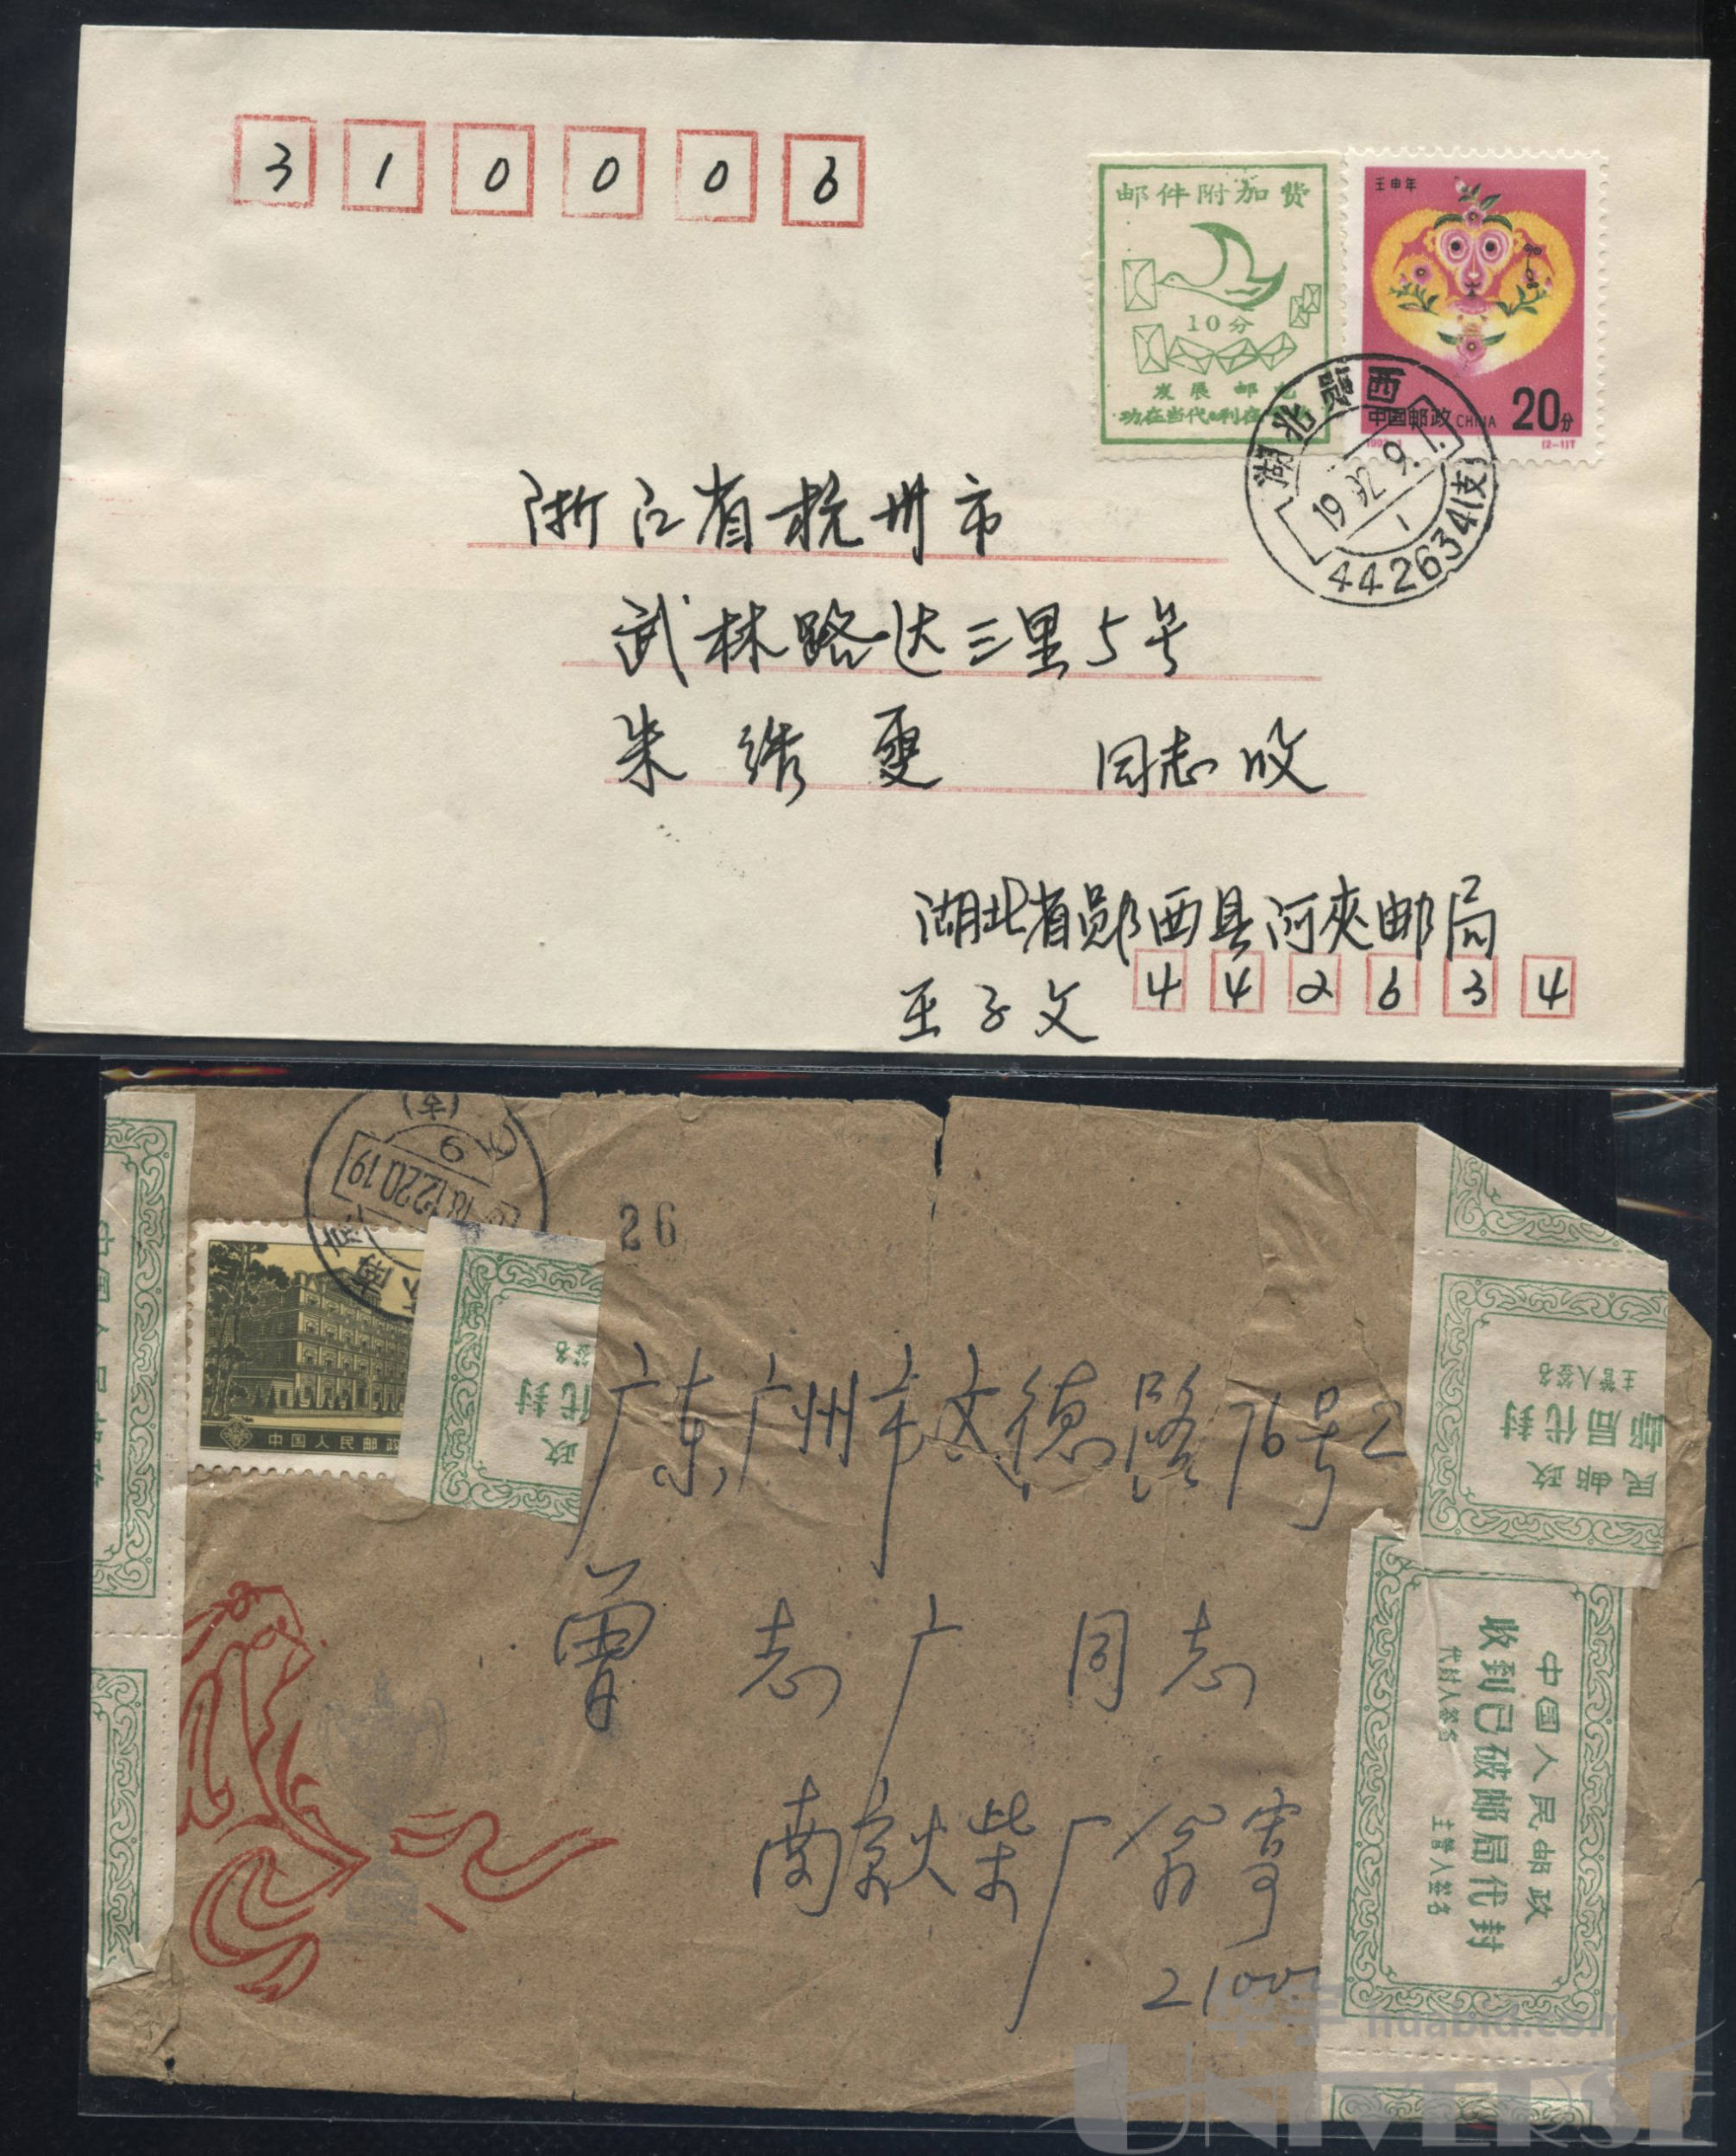 310006
邮件附加费
10分
发展邮
功在当代利在
壬申年
20分
中国邮政 CHINA
(2-1)T
湖北 郧西
19 92.9.1.
1
442634(支)
浙江省杭州市
武林路达三里5号
朱 绣 雯 同志收
湖北省郧西县河夹邮局
王子文 442634
26
中国人民邮政
签名
代封
政
广东广州市文德路76号2
曾志广同志
南京火柴厂翁寄
2100
主管人签名
邮局代封
民邮政
中国人民邮政
收到已破邮局代封
代封人签名 主管人签名
huabid.com
UNIVERSE